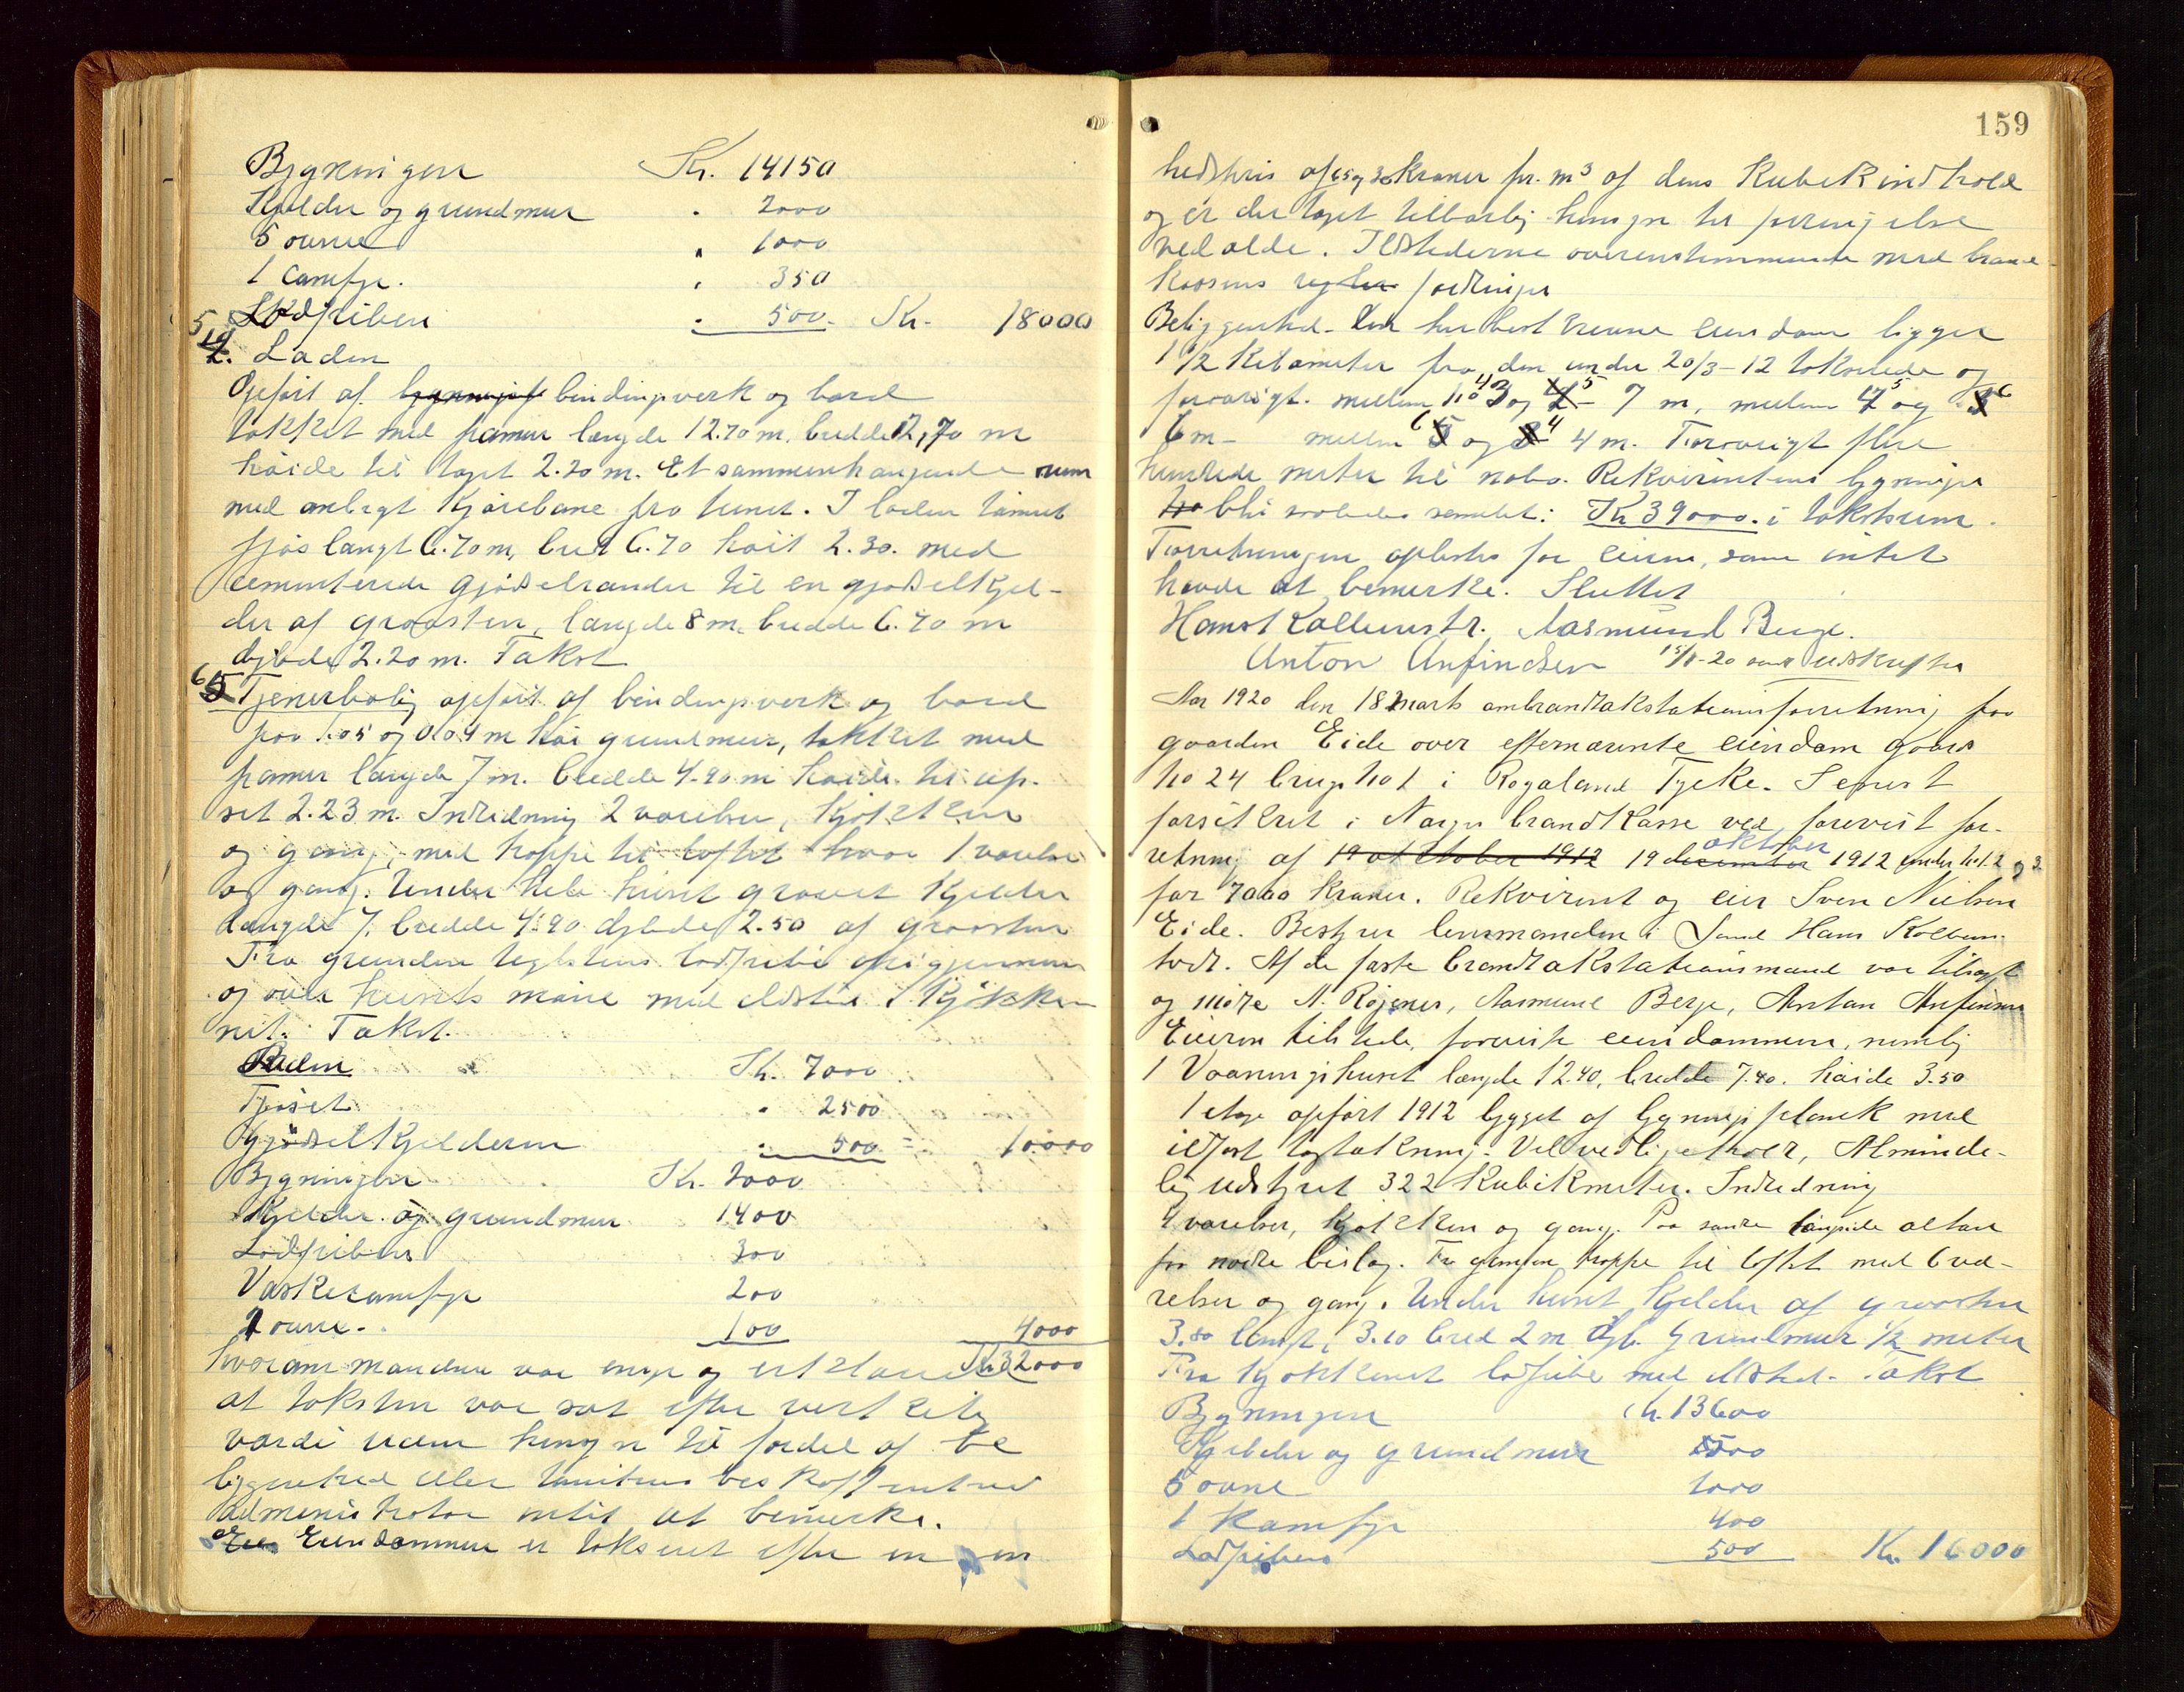 Bygningen Kr. 14150
Kjelder og grundmur " 2000
5 ovne " 1000
1 Comfyr. " 350
Lodpiben " 500. Kr. 18000
5 Laden
Opført af bygningspl bindingsverk og bord
tækket med panner længde 12.70 m. bredde 12,70 m
høide til taget 2.20 m. Et sammenhængende rum
med anlagt kjørebane fra tunet. I laden tømret
fjøs langt 6.70 m, bred 6.70 høit 2.30. med
cementerede gjødselrander til en gjødselkjel-
der af graasten, længde 8 m. bredde 6.70 m
dybde 2.20 m. Takst
6 Tjenerbolig opført af bindingsverk og bord
paa 1.05 og 0.04 m høi grundmur, tækket med
panner længde 7 m. bredde 4.90 m høide til op-
set 2.23 m. Indredning 2 værelser, kjøkken
og gang, med trappe til loftet hvor 1 værelse
og gang. Under hele huset gravet kjelder
længde 7. bredde 4.90 dybde 2.50 af graasten
Fra grunden teglstens lodpibe opigjennem
og over husets møne med ildsted i kjøkke
net. Takst.
Laden Kr. 7000
Fjøset " 2500
Gjødselkjelderen " 500 = 10.000
Bygningen Kr. 2000
Kjelder og grundmur 1400
Lodpiben 300
Vaskecomfyr 200
2 ovne. 100 4000
hvorom mændene var enige og erklærede Kr 32000
at taksten var sat efter verkelig
værdi uden hensyn til fordel af be
liggenhed eller tomtens beskaffenhed
administrator intet at bemerke.
Eiendommen er takseret efter en en
159
hedspris af 45 og 30 kroner pr. m³ af dens kubikindhold
og er der taget tilbørlig hensyn til foringelse
ved ælde. Ildstederne overensstemmende med brand
kassens regler fordringer
Beliggenhed. Den her beskrevne eiendom ligger
1 1/2 kilometer fra den under 20/3-12 takserede og
forøvrigt. mellem No 3 og 5 7 m, mellem 5 og 6
6 m - mellem 6 og 4 4 m. Forøvrigt flere
hundrede meter til nabo. Rekvirentens bygninger
blir saaledes samlet: Kr 39000. i takstsum.
Forretningen oplæstes for eieren, som intet
havde at bemerke. Sluttet
Hans Kolbenstv. Aasmund Berge.
Anton Anfindsen 15/8-20 sendt udskrifter
Aar 1920 den 18 marts ombrandtakstationsforretning paa
gaarden Eide over efternævnte eiendom gaards
No 24 brugs No 1 i Rogaland Fylke. Senest
forsikret i Norges brandkasse ved forevist for-
retning af 19 oktober 1912 19 december oktober 1912 under No 1. 2 og 3
for 7000 kroner. Rekvirent og eier Sven Nielsen
Eide. Bestyrer lensmanden i Sand Hans Kolben-
tvedt. Af de faste brandtakstationsmænd var tilsagt
og møtte N. Røgenes, Aasmund Berge, Anton Anfinsen
Eieren tilstede, foreviste eiendommen, nemlig
1 Vaaningshuset længde 12.40, bredde 7.40. høide 3.50
1 etage opført 1912 bygget af bygningsplank med
ildfast tagtækning. Velvedligeholdt, Alminde-
lig udstyret 322 Kubikmeter. Indredning
4 værelser, kjøkken og gang. Paa søndre langside altan
paa nordre bislag. Fra gangen trappe til loftet med 6 væ-
relser og gang. Under huset kjelder af graasten
3.80 langt, 3.10 bred 2 m dyb. Grundmur 1/2 meter
Fra kjøkkenet lodpibe med ildsted. Takst
Bygningen Kr. 13600
Kjelder og grundmur 500
5 ovne 1000
1 Komfyr 400
Lodpiben 500 Kr. 16000